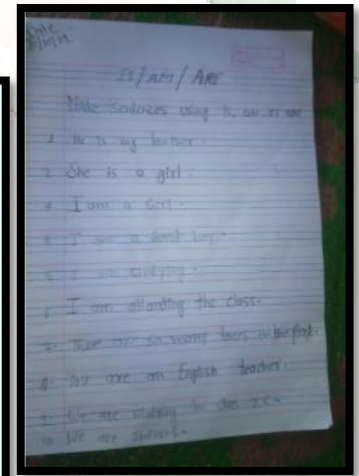 Date
Is/Am/Are
Make sentences using is, am or are
1. He is my brother.
2. She is a girl.
3. I am a Girl.
4. I am a Good boy.
5. I am studying.
6. I am attanting the class.
7. There are so many trees in the Park.
8. You are an English teacher.
9. We are studying in
10 We are